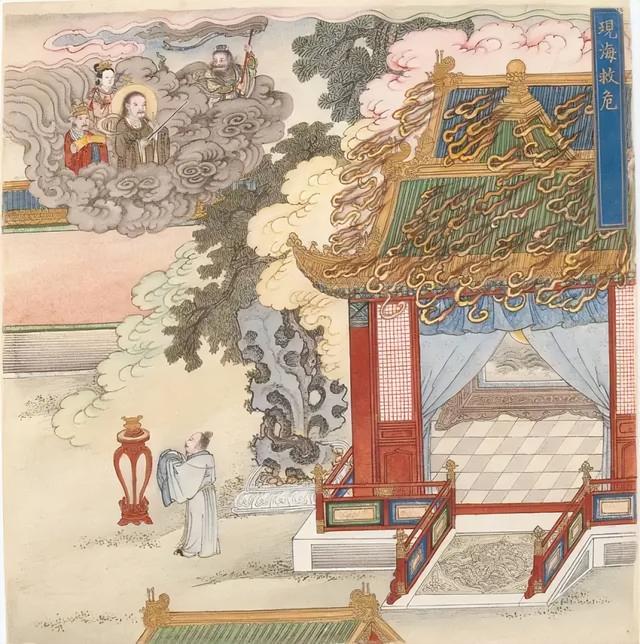 現海救危